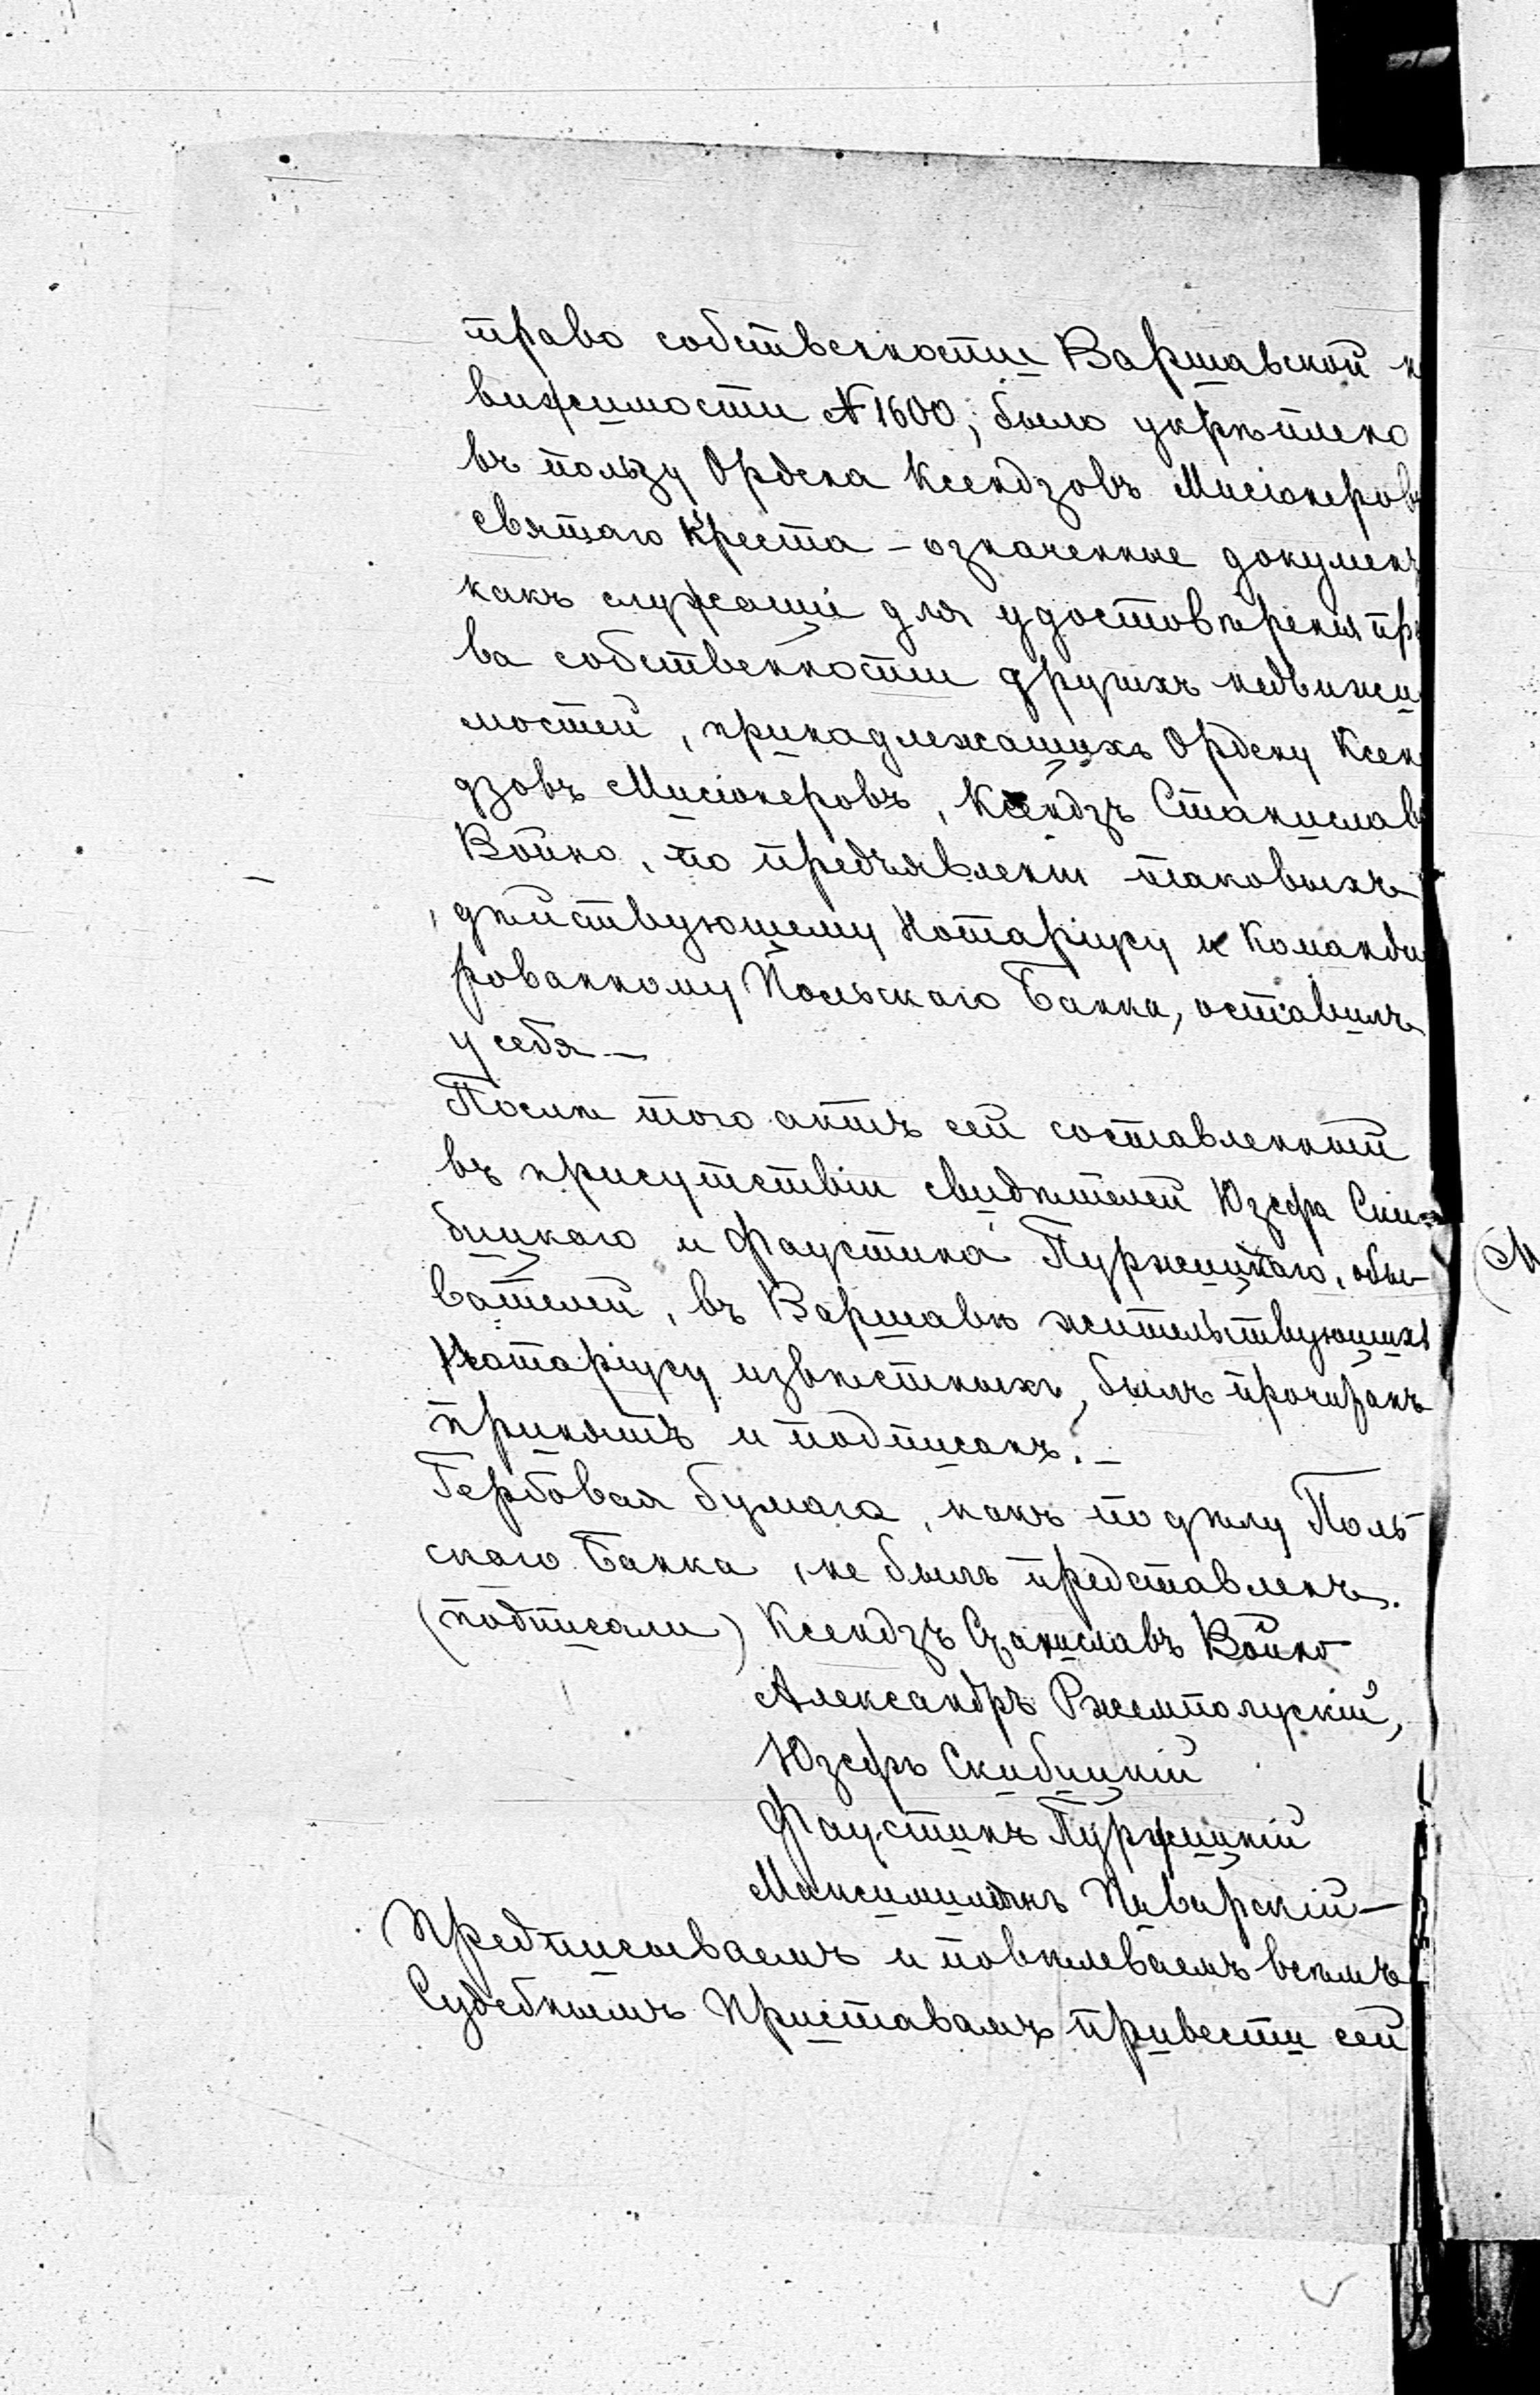 право собственности Варшавской н
вижимости № 1600, было укрѣплено
въ пользу Ордена Ксендзовъ Мисіонеровъ
святаго Креста – означенные докумен
какъ служащіе для удостовѣренія пр
ва собственности другихъ недвижи
мостей, принадлежащихъ Ордену Ксен
дзовъ Мисіонеровъ, Ксендзъ Станиславъ
Война, по предъявленіи таковыхъ
дѣйствующему Нотаріусу и команди
рованному Польскаго Банка, оставилъ
у себя. –
Послѣ того актъ сей составленный
въ присутствіи свидѣтелей Юзефа Ски-
бицкаго и Фаустина Пуржицкаго, обы-
вателей, въ Варшавѣ жительствующихъ
Нотаріусу извѣстныхъ, былъ прочитанъ
принятъ и подписанъ. –
Гербовая бумага, какъ по дѣлу Поль-
скаго Банка, не былъ представленъ.
(подписали) Ксендзъ Станиславъ Войно
Александръ Ржемполускій,
Юзефъ Скибицкій
Фаустинъ Пуржицкій
Максимиліанъ Пиварскій –
Предписываемъ и повѣлеваемъ всѣмъ
Судебнымъ Приставамъ привести сей
(М